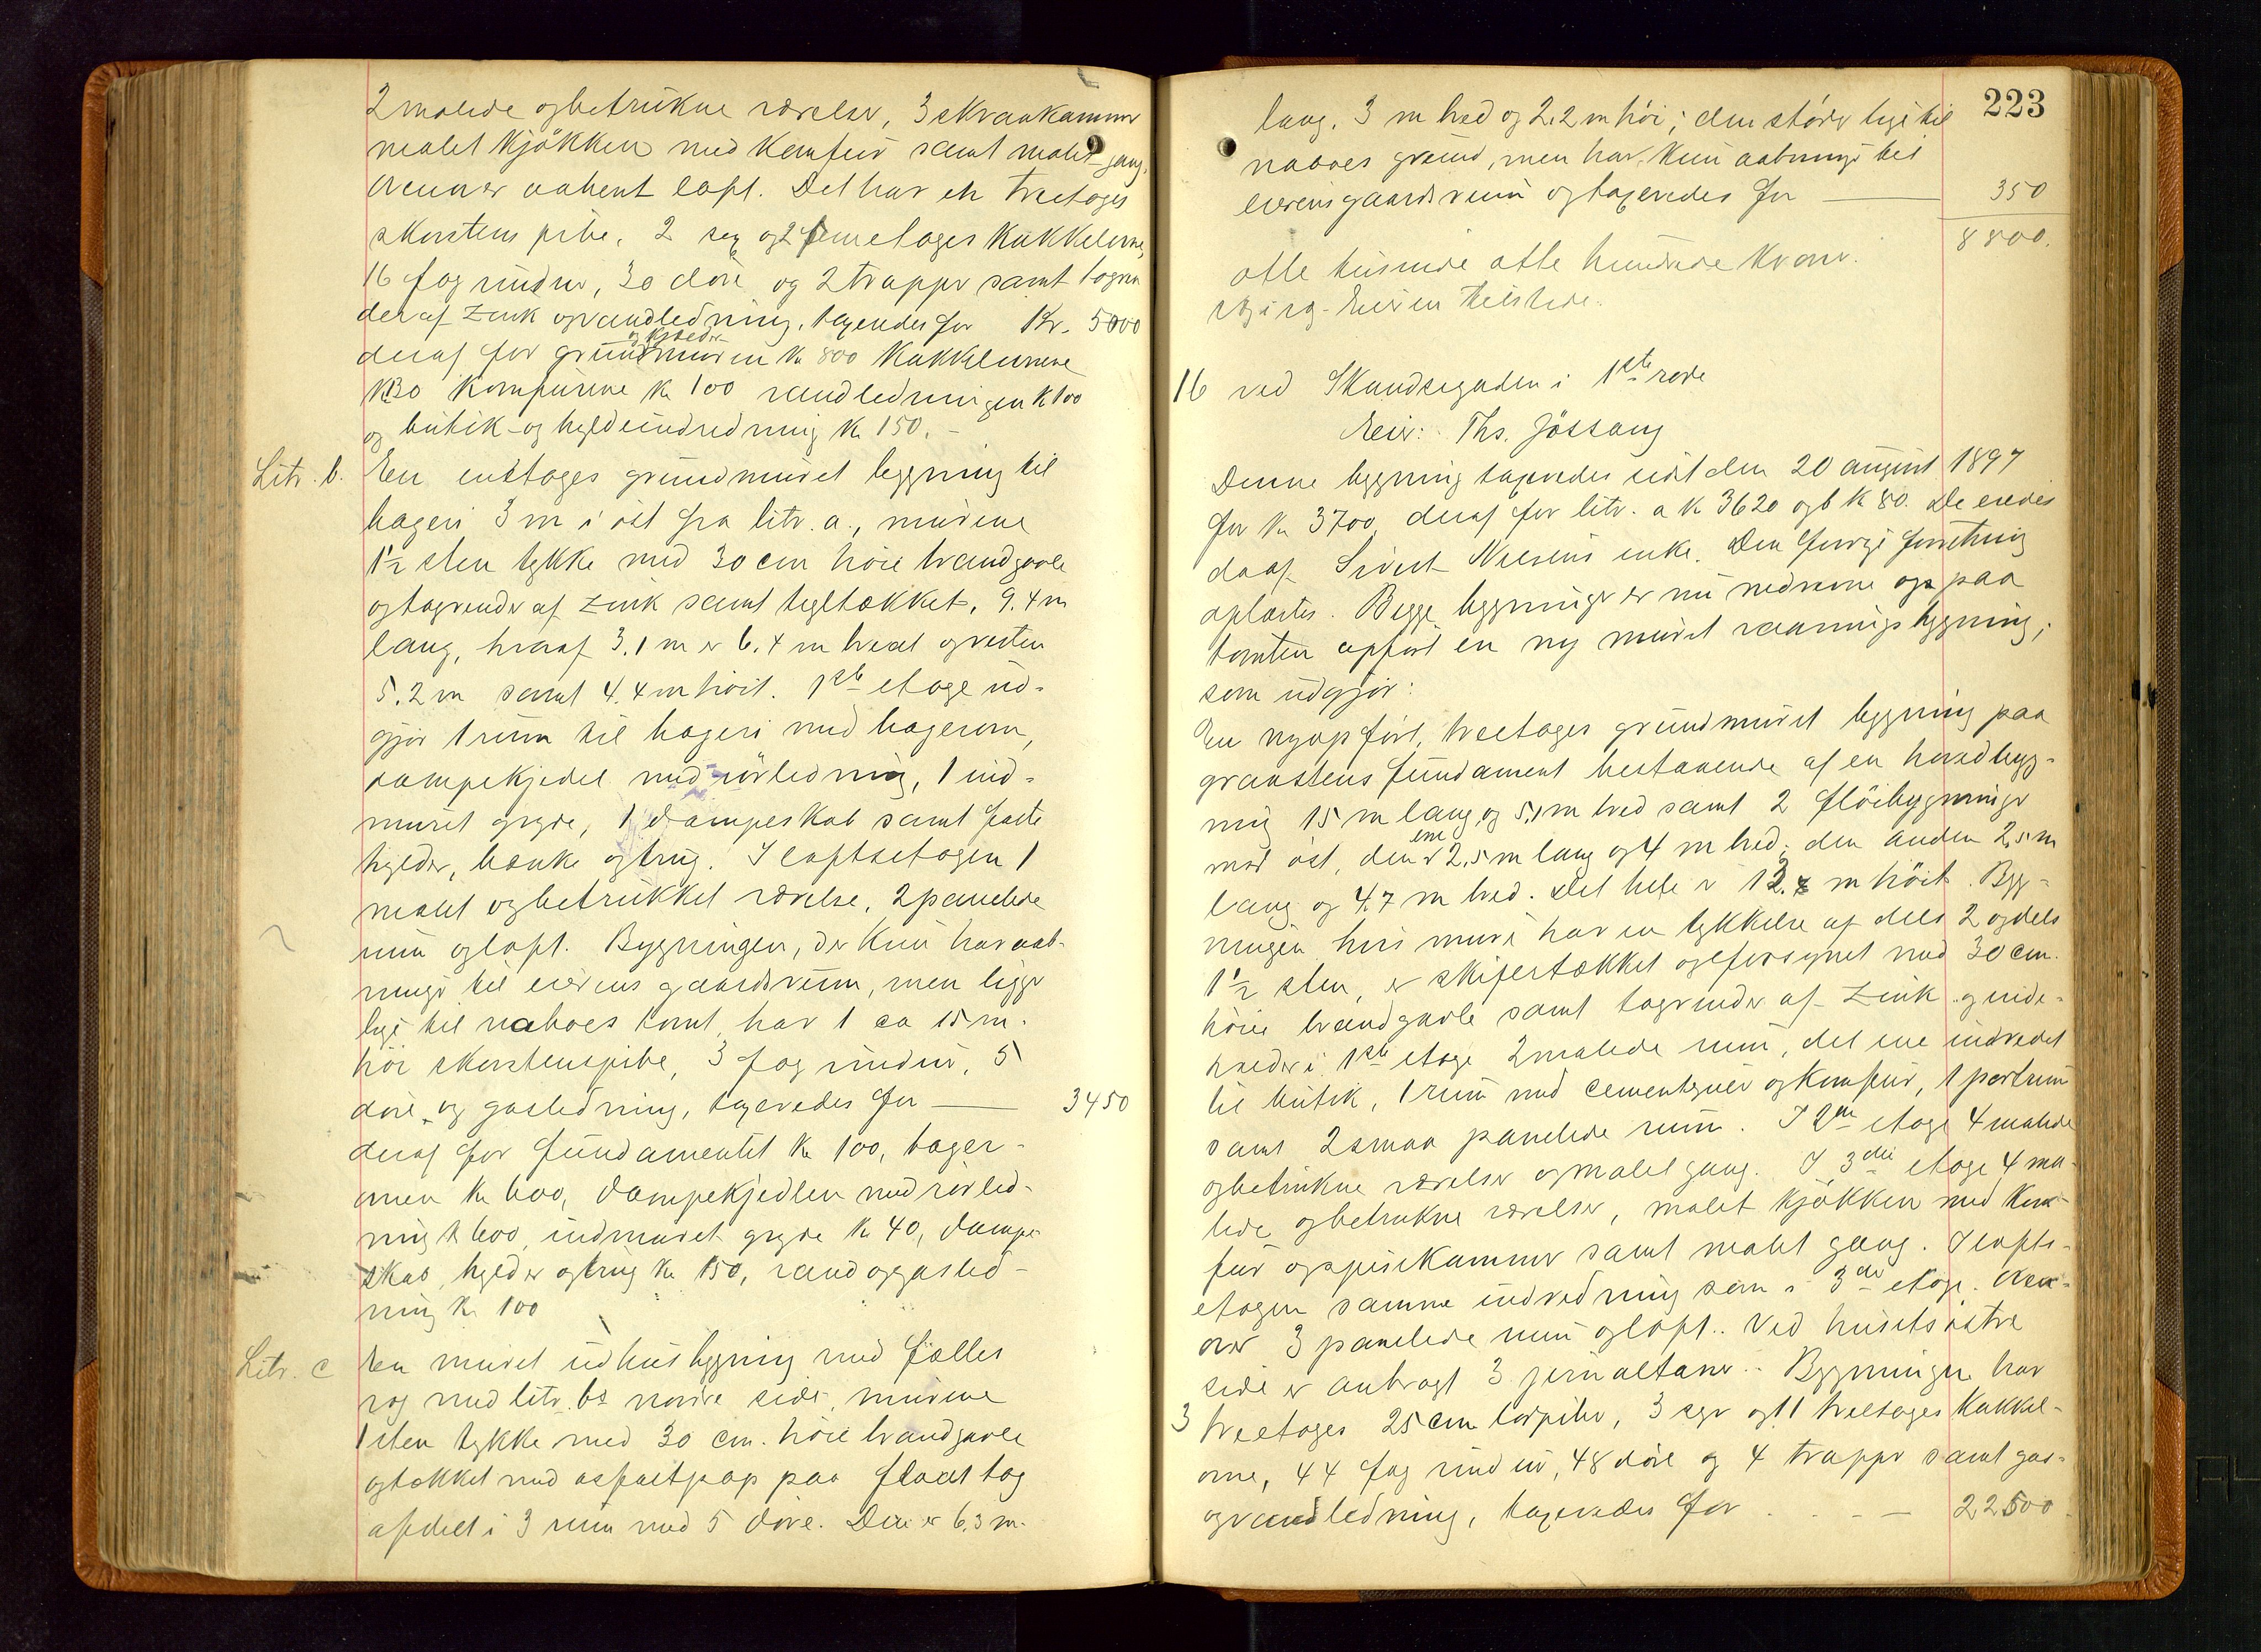 2 malede og betrukne værelser, 3 skraakammer
malet kjøkken med komfur samt malet gang.
Ovenover aabent loft. Det har en treetages
skorstenspibe, 2 sex og 2 femetages kakkelovne,
16 fag vinduer, 30 døre og 2 trapper samt tagren
der af zink og vandledning, taxeredes for Kr. 5000
og kjelder
deraf for grundmuren K 800 kakkelovnene
K 130 komfurene K 100 vandledningen K 100
og butik- og hyldeindredning K 150.-
Litr. b. En enetages grundmuret bygning til
bageri 3 m i øst fra litr. a., murene
1½ sten tykke med 30 cm høie brandgavle
og tagrender af zink samt tegltækket, 9.4 m
lang, hvoraf 3.1 m er 6.4 m bred og resten
5.2 m samt 4.4 m høit. 1ste etage ud-
gjør 1 rum til bageri med bagerovn,
dampekjedel med rørledning, 1 ind-
muret gryde, 1 dampeskab samt faste
hylder, bænke og trug. I loftsetagen 1
malet og betrukket værelse, 2 panelede
rum og loft. Bygningen, der kun har aab-
ninger til eierens gaardsrum, men ligger
lige til naboes tomt, har 1 ca 15 m.
høi skorstenspibe, 3 fag vinduer, 5
døre, og gasledning, taxeredes for — 3450
deraf for fundamentet K 100, bager-
ovnen K 600, dampekjedlen med rørled-
ning K 600, indmuret gryde K 40, dampe-
skab, hylder og trug K 150, vand og gasled-
ning K 100
Litr. c En muret udhusbygning med fælles
væg med litr. bs nordre side, murene
1 sten tykke med 30 cm. høie brandgavle
og tækket med asfaltpap paa fladt tag
afdelt i 3 rum med 5 døre. Den er 6.3 m.
223
lang, 3 m bred og 2.2 m høi; den støder lige til
naboes grund, men har kun aabninger til
eierens gaardsrum og taxeredes for — 350
8800.
otte tusinde otte hundrede kroner.
Eieren tilstede.
16 ved Skandsegaden i 1ste rode
Eier: Ths. Jøssang
Denne bygning taxeredes sidst den 20 august 1897
for K 3700, deraf for litr. a K 3620 og b K 80. De eiedes
da af Sivert Nilsens enke. Den forrige forretning
oplæstes. Begge bygninger er nu nedrevne og paa
tomten opført en ny muret vaaningsbygning,
som udgjør:
En nyopført, treetages grundmuret bygning paa
graastens fundament bestaaende af en hovedbyg-
ning 15 m lang og 5,1 m bred samt 2 fløibygninger
ene
mod øst, den er 2,5 m lang og 4 m bred; den anden 2,5 m
lang og 4.7 m bred. Det hele er 12.8 m høit. Byg-
ningen hvis mure har en tykkelse af dels 2 og dels
1½ sten, er skifertækket og forsynet med 30 cm.
høie brandgavle samt tagrender af zink og inde-
holder i 1ste etage 2 malede rum, det ene indredet
til butik, 1 rum med cementgulv og komfur, 1 portrum
samt 2 smaa panelede rum. I 2den etage 4 malede
og betrukne værelser og malet gang. I 3die etage 4 ma-
lede og betrukne værelser, malet kjøkken med kom-
fur og spisekammer samt malet gang. I lofts-
etagen samme indredning som i 3die etage. Oven-
over 3 panelede rum og loft. Ved husets østre
side er anbragt 3 jernaltaner. Bygningen har
3 treetages 25 cm løbpiber, 3 seger og 11 treetages kakkel-
ovne, 44 fag vinduer, 48 døre og 4 trapper samt gas-
og vandledning, taxeredes for . . . — 22500